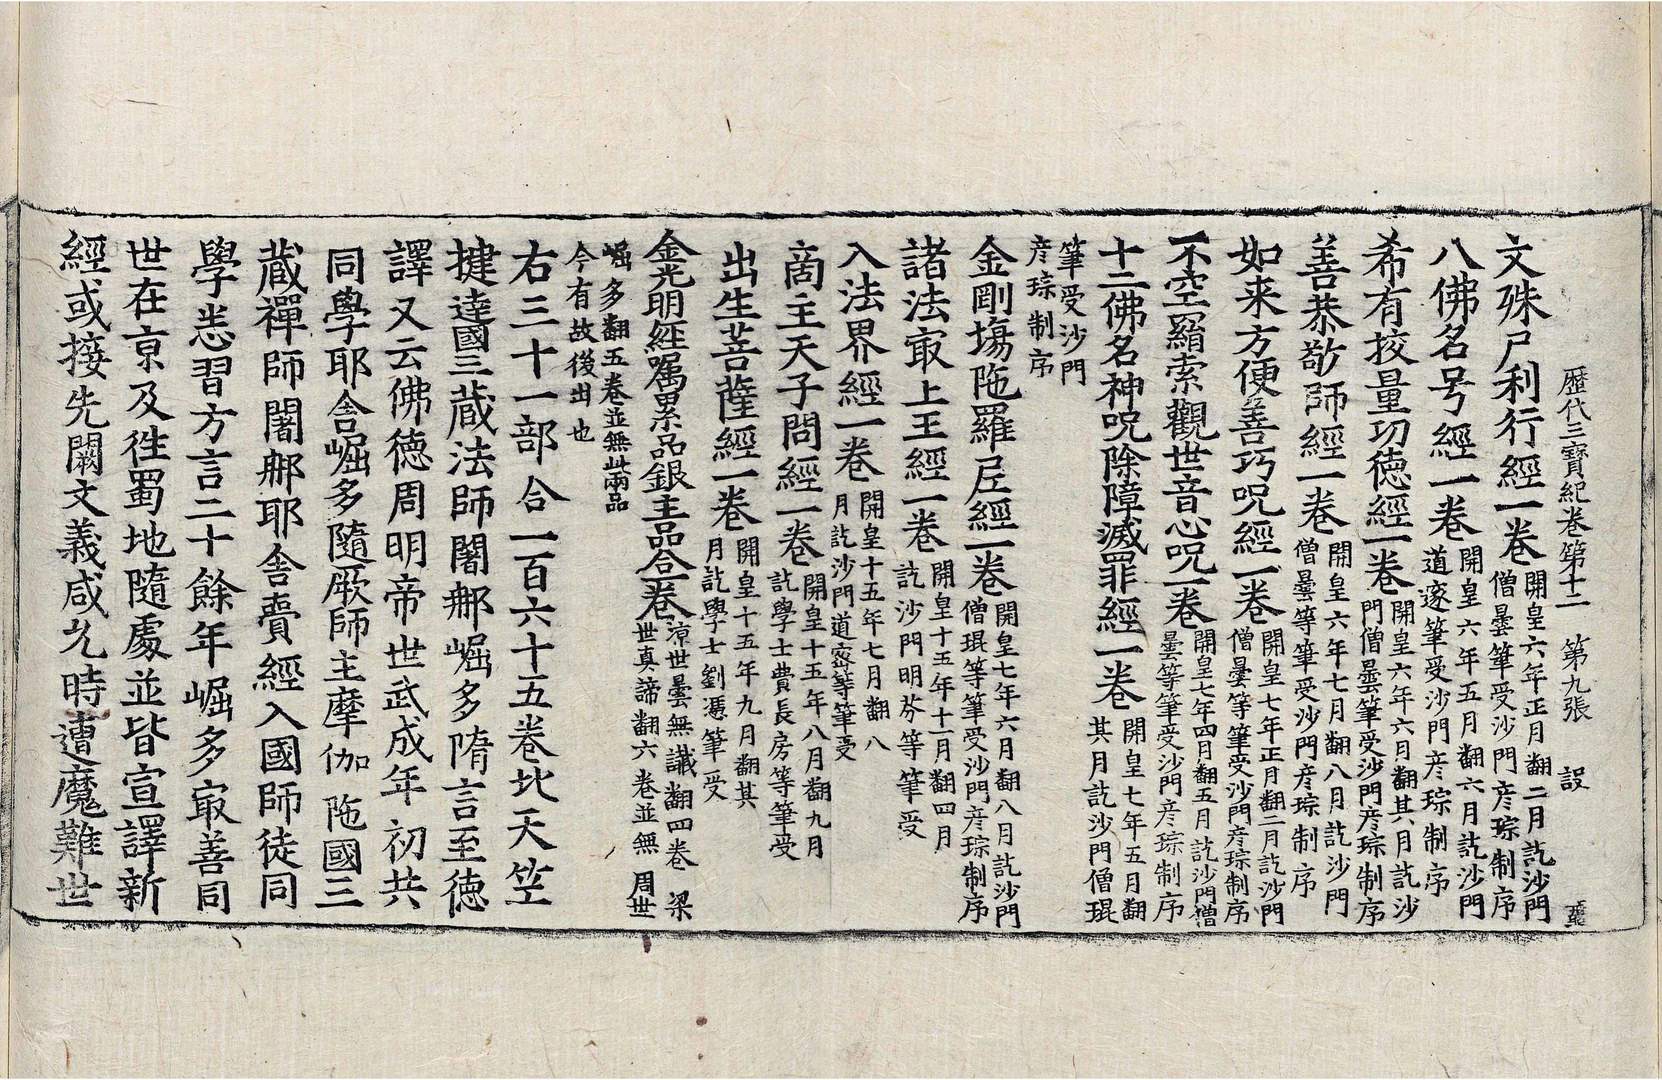 歷代三寶紀卷第十二 第九張 設
文殊尸利行經一卷開皇六年正月翻二月訖沙門僧曇等筆受沙門彥琮制序
八佛名号經一卷開皇六年五月翻六月訖沙門道邃筆受沙門彥琮制序
希有挍量功德經一卷開皇六年六月翻其月訖沙門僧曇筆受沙門彥琮制序
善恭敬師經一卷開皇六年七月翻八月訖沙門僧曇等筆受沙門彥琮制序
如来方便善巧呪經一卷開皇七年正月翻二月訖沙門僧曇等筆受沙門彥琮制序
不空羂索觀世音心呪一卷開皇七年四月翻五月訖沙門僧曇等筆受沙門彥琮制序
十二佛名神呪除障滅罪經一卷開皇七年五月翻其月訖沙門僧琨
筆受沙門彥琮制序
金剛場陁羅尼經一卷開皇七年六月翻八月訖沙門僧琨等筆受沙門彥琮制序
諸法冣上王經一卷開皇十五年十一月翻四月訖沙門明芬等筆受
入法界經一卷開皇十五年七月翻八月訖沙門道密等筆受
商主天子問經一卷開皇十五年八月翻九月訖學士費長房等筆受
出生菩薩經一卷開皇十五年九月翻其月訖學士劉憑筆受
金光明經囑累品銀主品合一卷涼世曇無讖翻四卷 梁世真諦翻六卷並無 周世
崛多翻五卷並無此兩品今有故後出也
右三十一部合一百六十五卷北天竺
揵達國三藏法師闍𨚗崛多隋言至德
譯又云佛德周明帝世武成年初共
同學耶舍崛多隨厥師主摩伽陁國三
藏禪師闍𨚗耶舍賫經入國師徒同
學悉習方言二十餘年崛多冣善同
世在京及徃蜀地隨處並皆宣譯新
經或接先闕文義咸允時遭魔難世